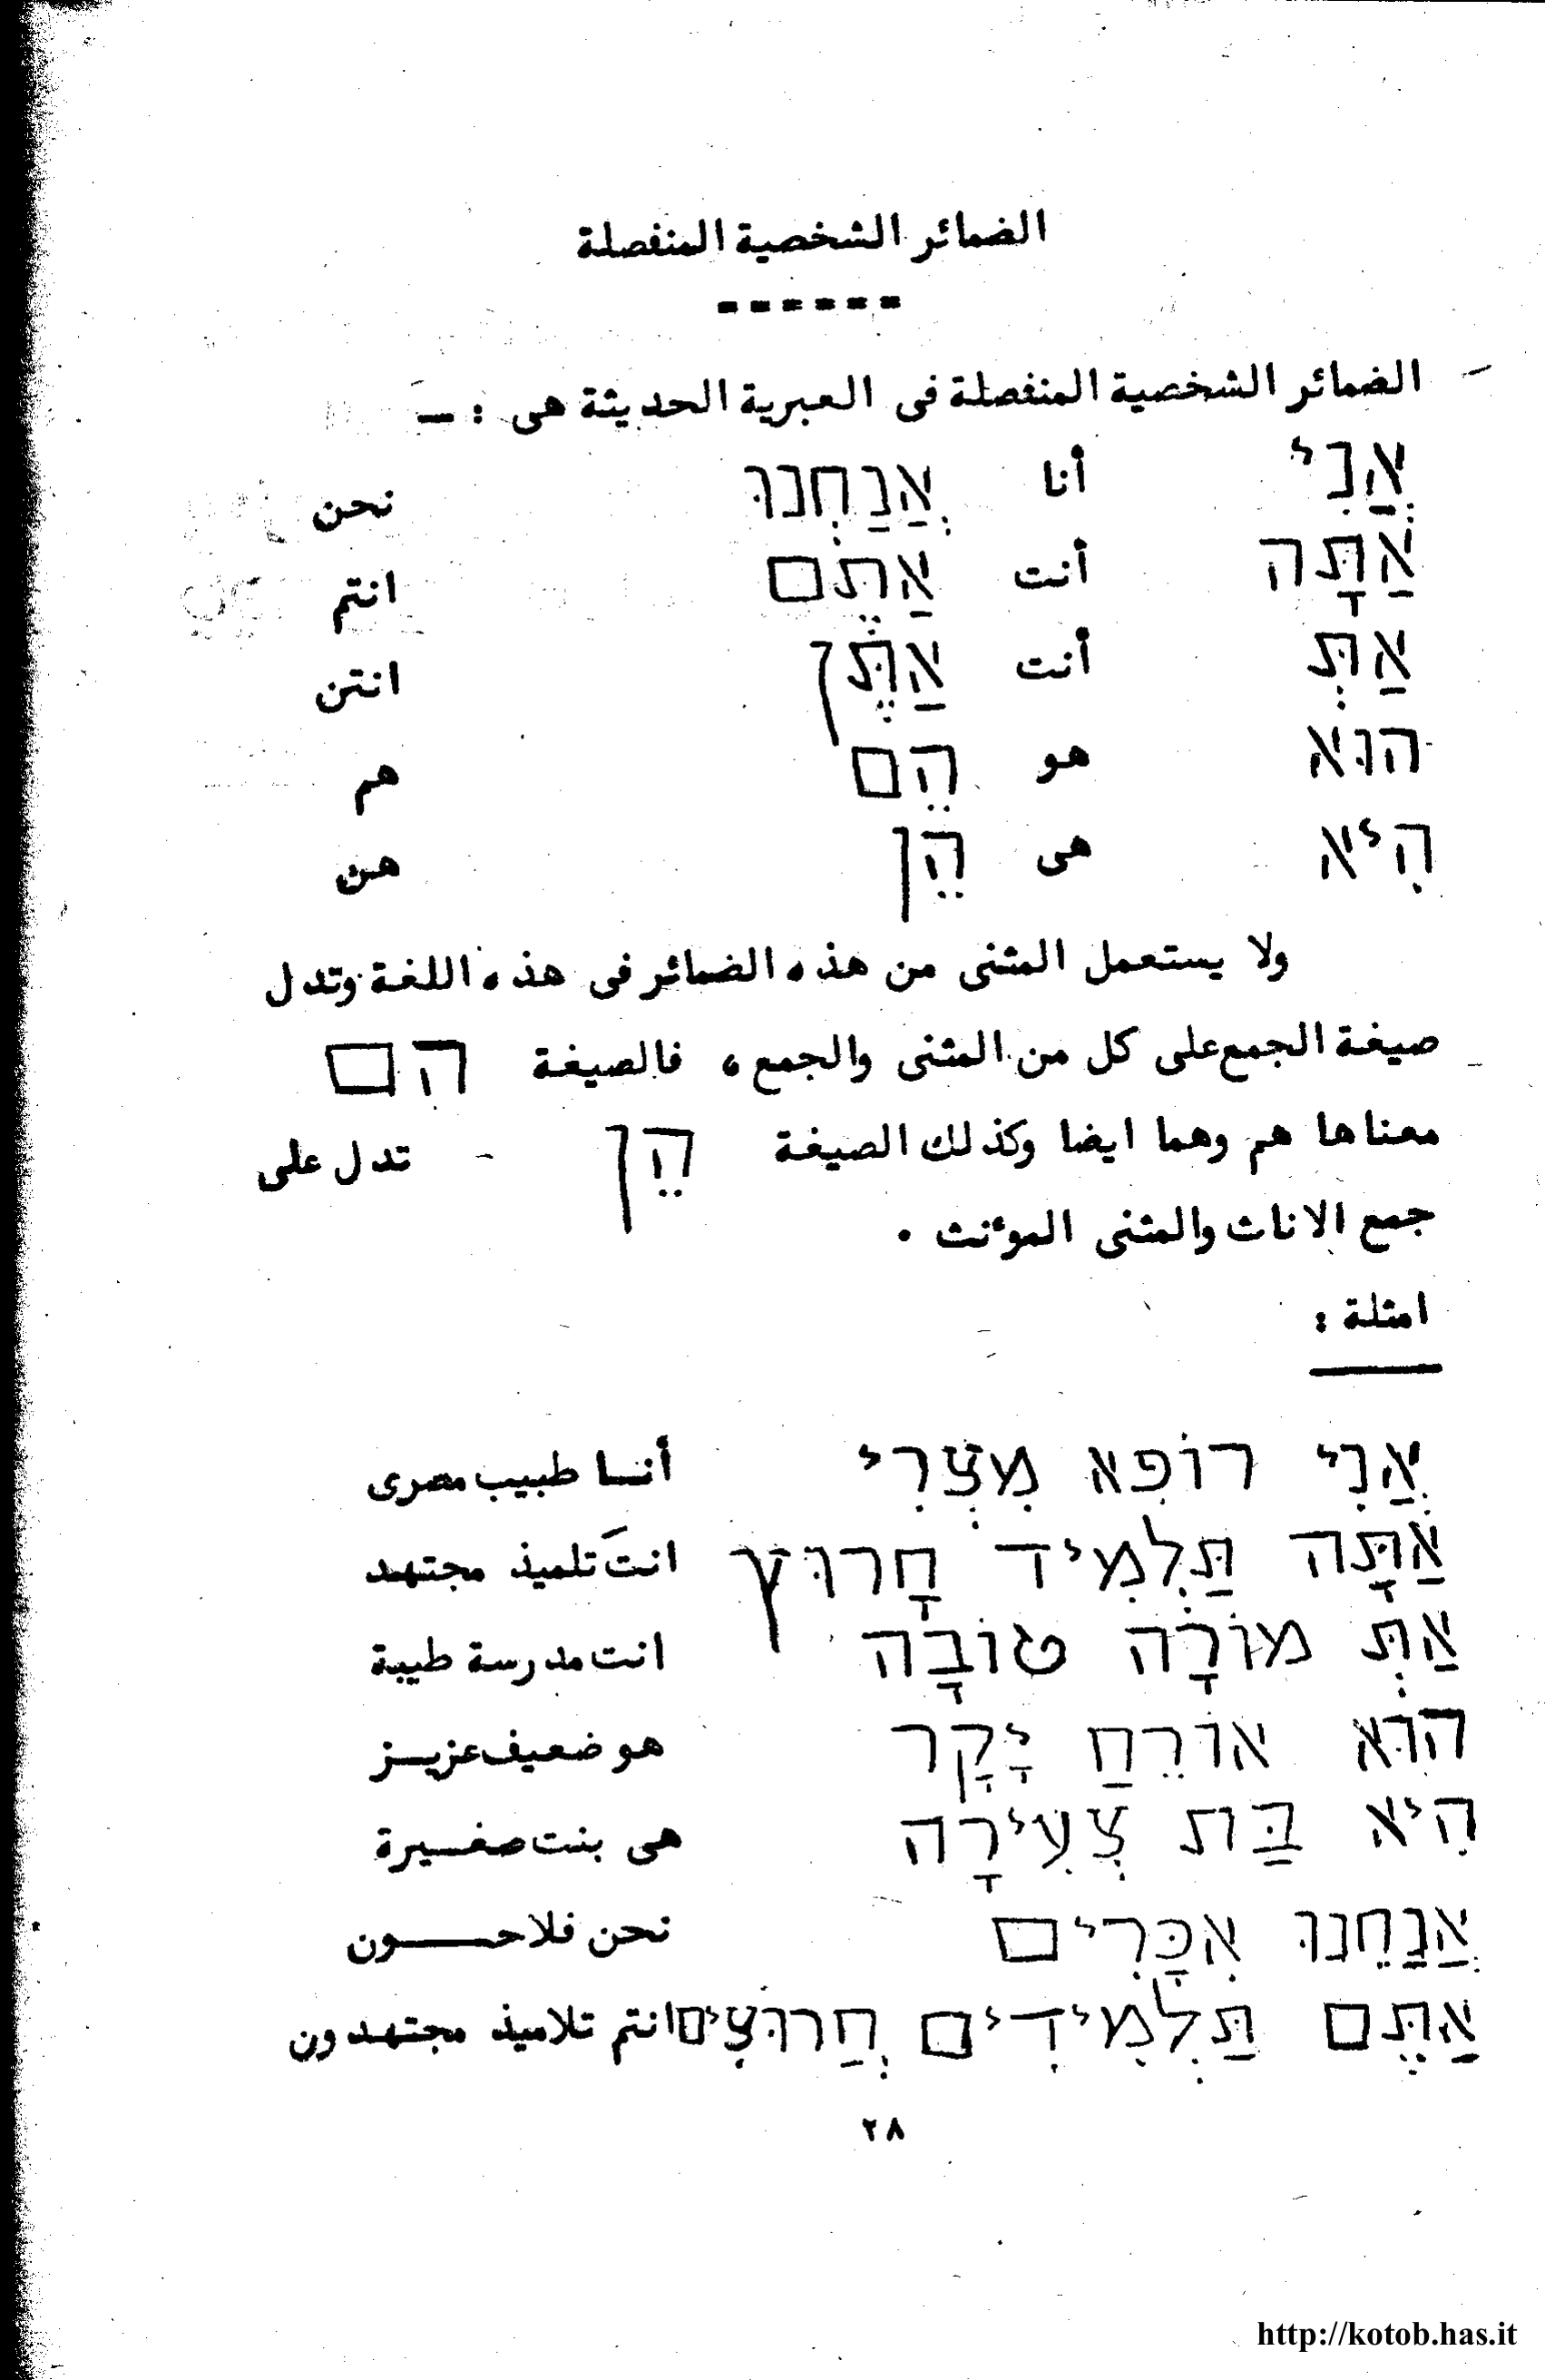 الضمائر الشخصية المنفصلة
الضمائر الشخصية المنفصلة فى العبرية الحديثة هى : ـ
אֲנִי أنا אֲנַחְנוּ نحن
אַתָּה أنت אַתֶּם انتم
אַתְּ أنت אַתֶּן انتن
הוּא هو הֵם هم
הִיא هى הֵן هن
ولا يستعمل المثنى من هذه الضمائر فى هذه اللغة وتدل
صيغة الجمع على كل من المثنى والجمع ، فالصيغة הם
معناها هم وهما ايضا وكذلك الصيغة הֵן تدل على
جمع الاناث والمثنى الموءنث .
امثلة :
אֲנִי רוֹפִא מִצְרִי أنا طبيب مصرى
אַתָּה תַּלְמִיד חָרוּץ انتَ تلميذ مجتهد
אַתְּ מוֹרָה טוֹבָה انت مدرسة طيبة
הוּא אוֹרֵחַ יָקָר هو ضعيف عزيز
הִיא בַּת צְעִירָה هى بنت صغيرة
אֲנַחֵנוּ אִכָּרִים نحن فلاحون
אַתֶּם תַּלְמִידִים חֲרוּצִים انتم تلاميذ مجتهدون
٢٨
http://kotob.has.it